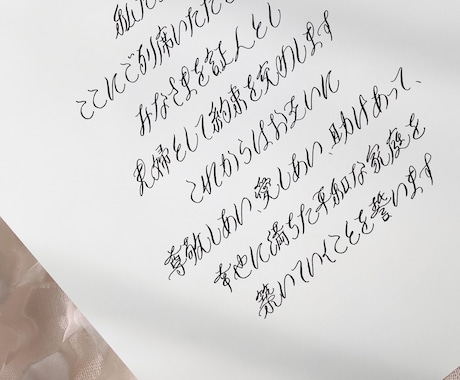 ここにご列席いただ
みなさまを証人とし
夫婦として約束を交わします
これからはお互いに
尊敬しあい、愛しあい、助けあって、
幸せに満ちた平和な家庭を
築いていくことを誓います